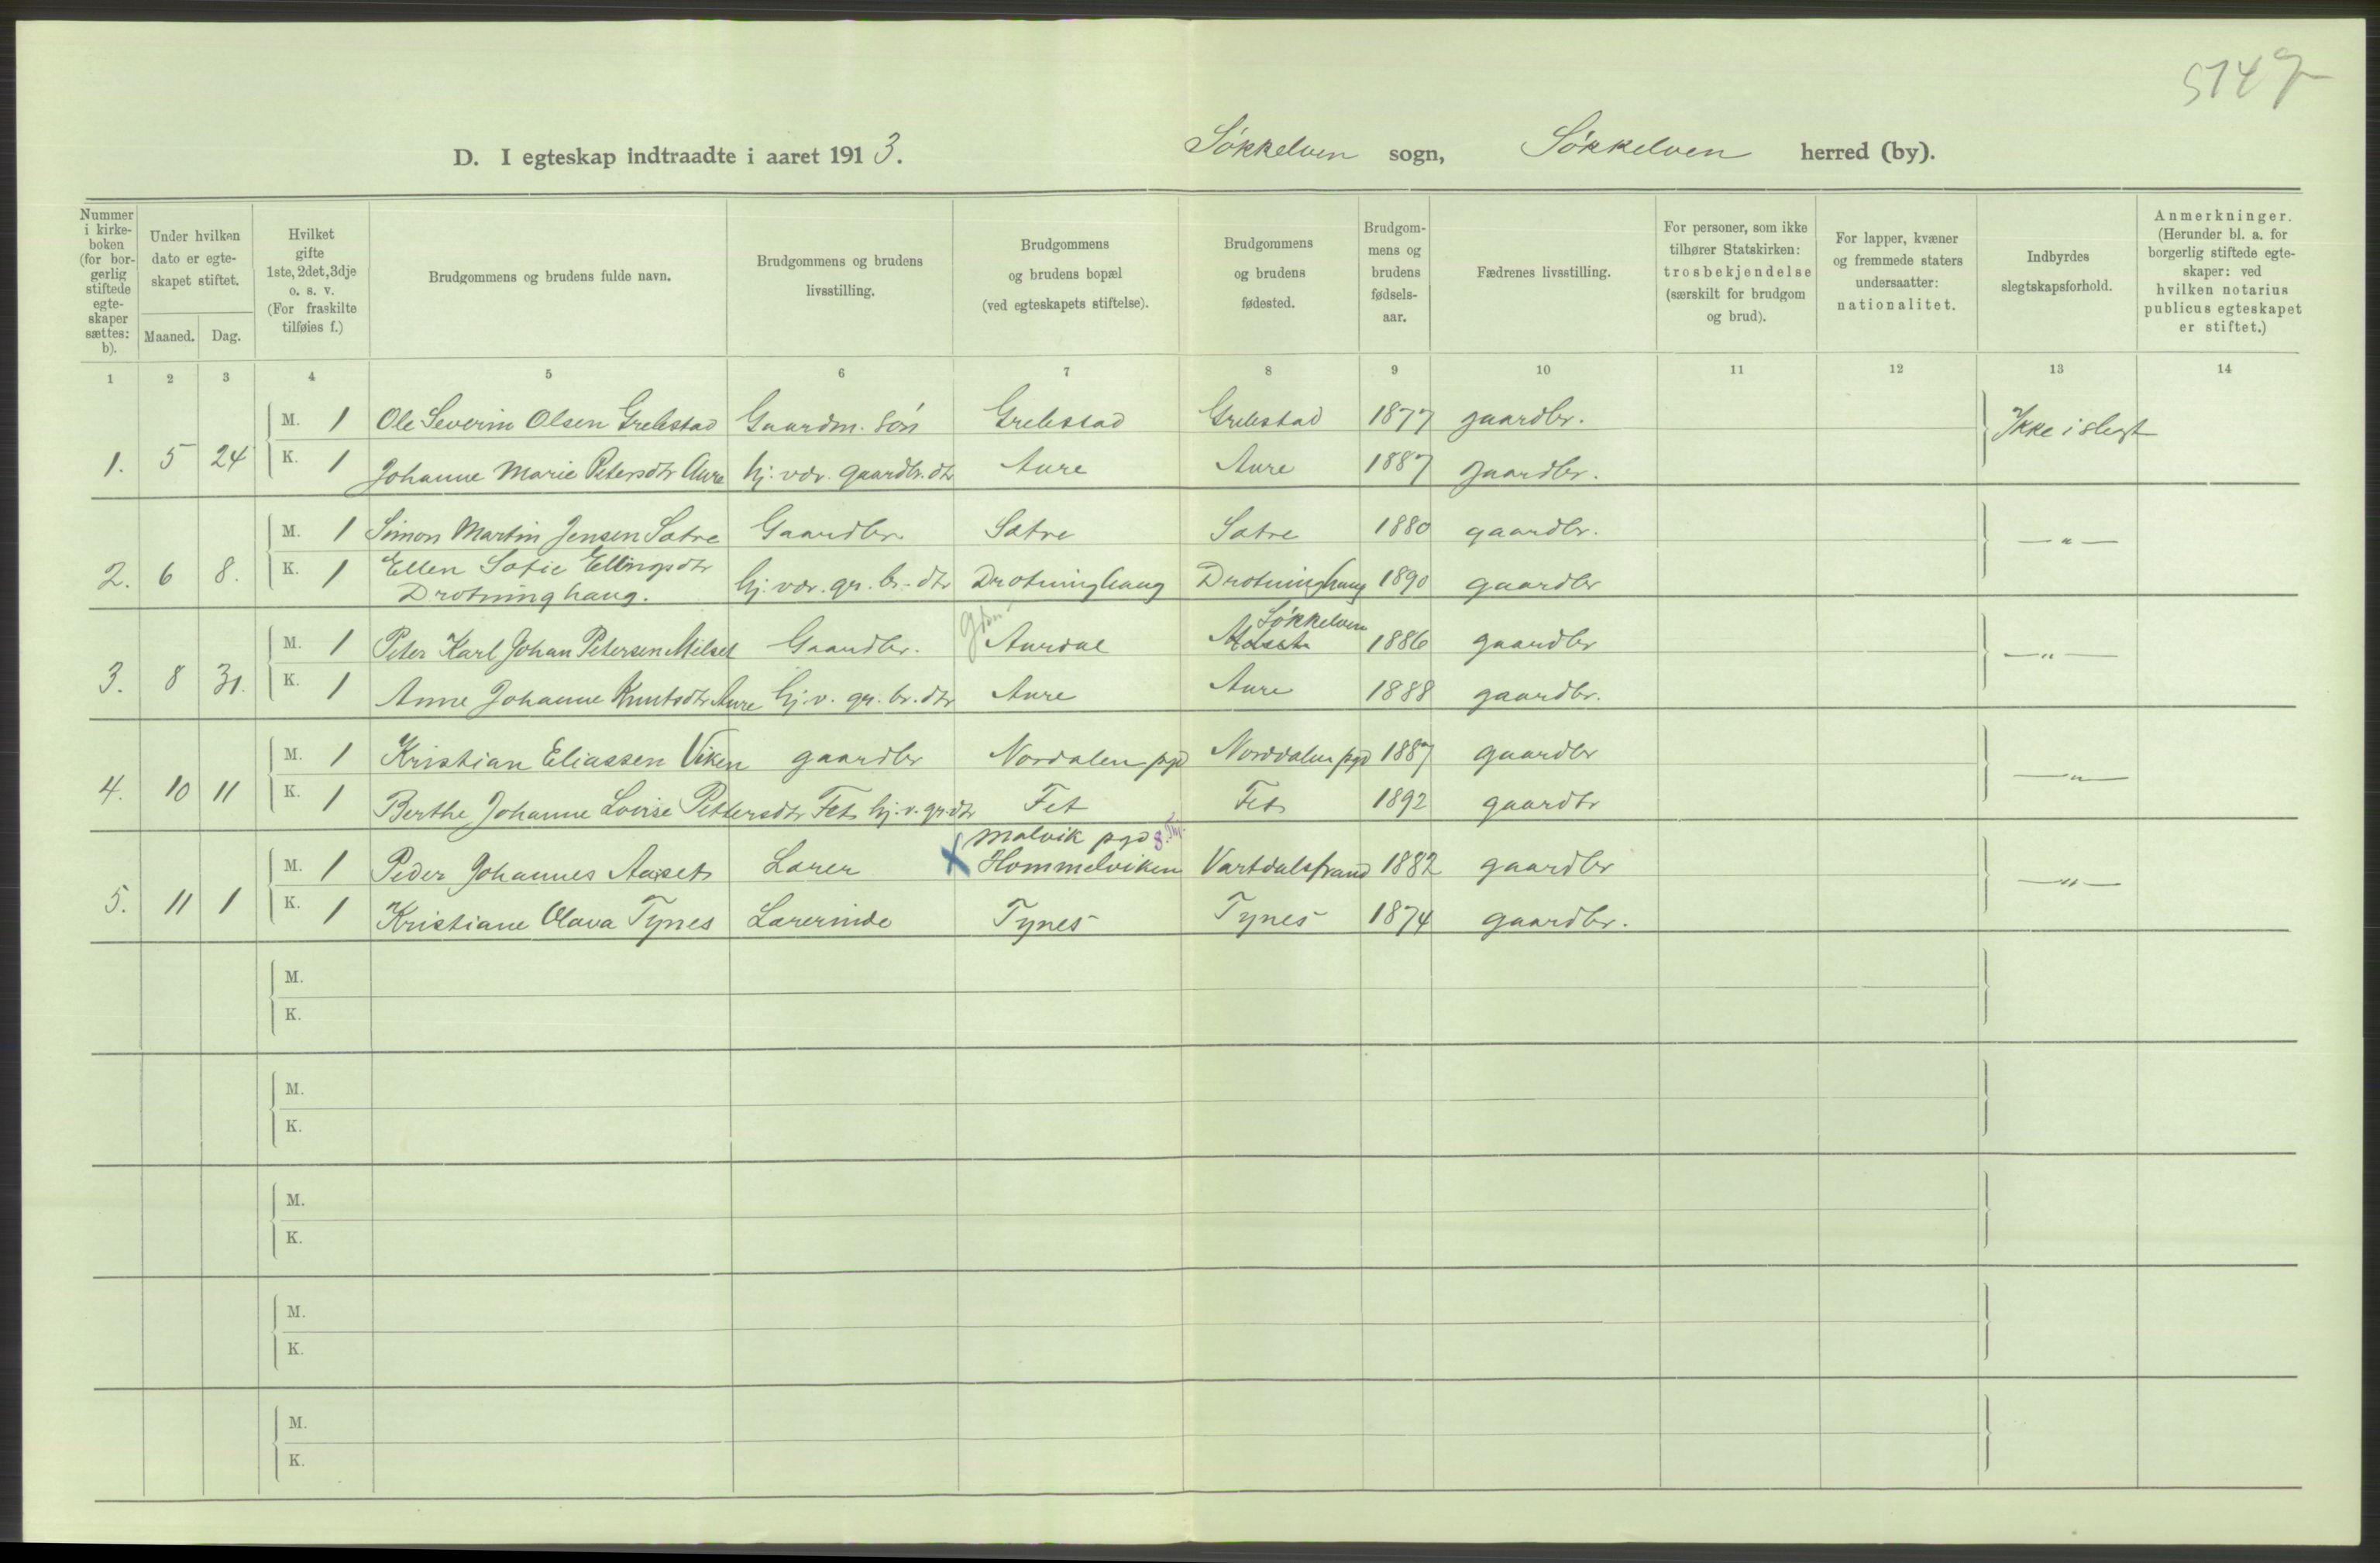 5747
D. I egteskap indtraadte i aaret 1913. Søkkelven sogn, Søkkelven herred (by).
Nummer i kirke-boken (for bor-gerlig stiftede egte-skaper sættes: b).
Under hvilken dato er egte-skapet stiftet.
Maaned. Dag.
Hvilket gifte 1ste, 2det, 3dje o. s. v. (For fraskilte tilføies f.)
Brudgommens og brudens fulde navn.
Brudgommens og brudens livsstilling.
Brudgommens og brudens bopæl (ved egteskapets stiftelse).
Brudgommens og brudens fødested.
Brudgom-mens og brudens fødsels-aar.
Fædrenes livsstilling.
For personer, som ikke tilhører Statskirken: trosbekjendelse (særskilt for brudgom og brud).
For lapper, kvæner og fremmede staters undersaatter: nationalitet.
Indbyrdes slegtskapsforhold.
Anmerkninger. (Herunder bl. a. for borgerlig stiftede egte-skaper: ved hvilken notarius publicus egteskapet er stiftet.)
1 2 3 4 5 6 7 8 9 10 11 12 13 14
M. 1 Ole Severin Olsen Grebstad Gaardm. søn Grebstad Grebstad 1877 gaardbr. Ikke i slegt
1. 5 24 K. 1 Johanne Marie Petersdtr Aure hj. vær. gaardbr. dtr Aure Aure 1887 gaardbr.
M. 1 Simon Martin Jensen Sætre Gaardbr. Sætre Sætre 1880 gaardbr. — " —
2. 6 8. K. 1 Ellen Sofie Ellingsdtr Drotninghaug. hj. vær. gr. br. dtr Drotninghaug Drotninghaug 1890 gaardbr
M. 1 Peter Karl Johan Petersen Melset Gaardbr. Aurdal Søkkelven Melset 1886 gaardbr — " —
3. 8 31. K. 1 Anne Johanne Knutsdtr Aure hj. v. gr. br. dtr Aure Aure 1888 gaardbr.
M. 1 Kristian Eliassen Viken gaardbr Nordalen pgd Norddalen pgd 1887 gaardbr — " —
4. 10 11 K. 1 Berthe Johanne Lovise Pettersdtr Fet hj. v. gr. dtr Fet Fet 1892 gaardbr
Malvik pgd S. Thj.
M. 1 Peder Johannes Aaset Lærer X Hommelviken Vartdalstrand 1882 gaardbr — " —
5. 11 1 K. 1 Kristiane Olava Tynes Lærerinde Tynes Tynes 1874 gaardbr.
M.
K.
M.
K.
M.
K.
M.
K.
M.
K.